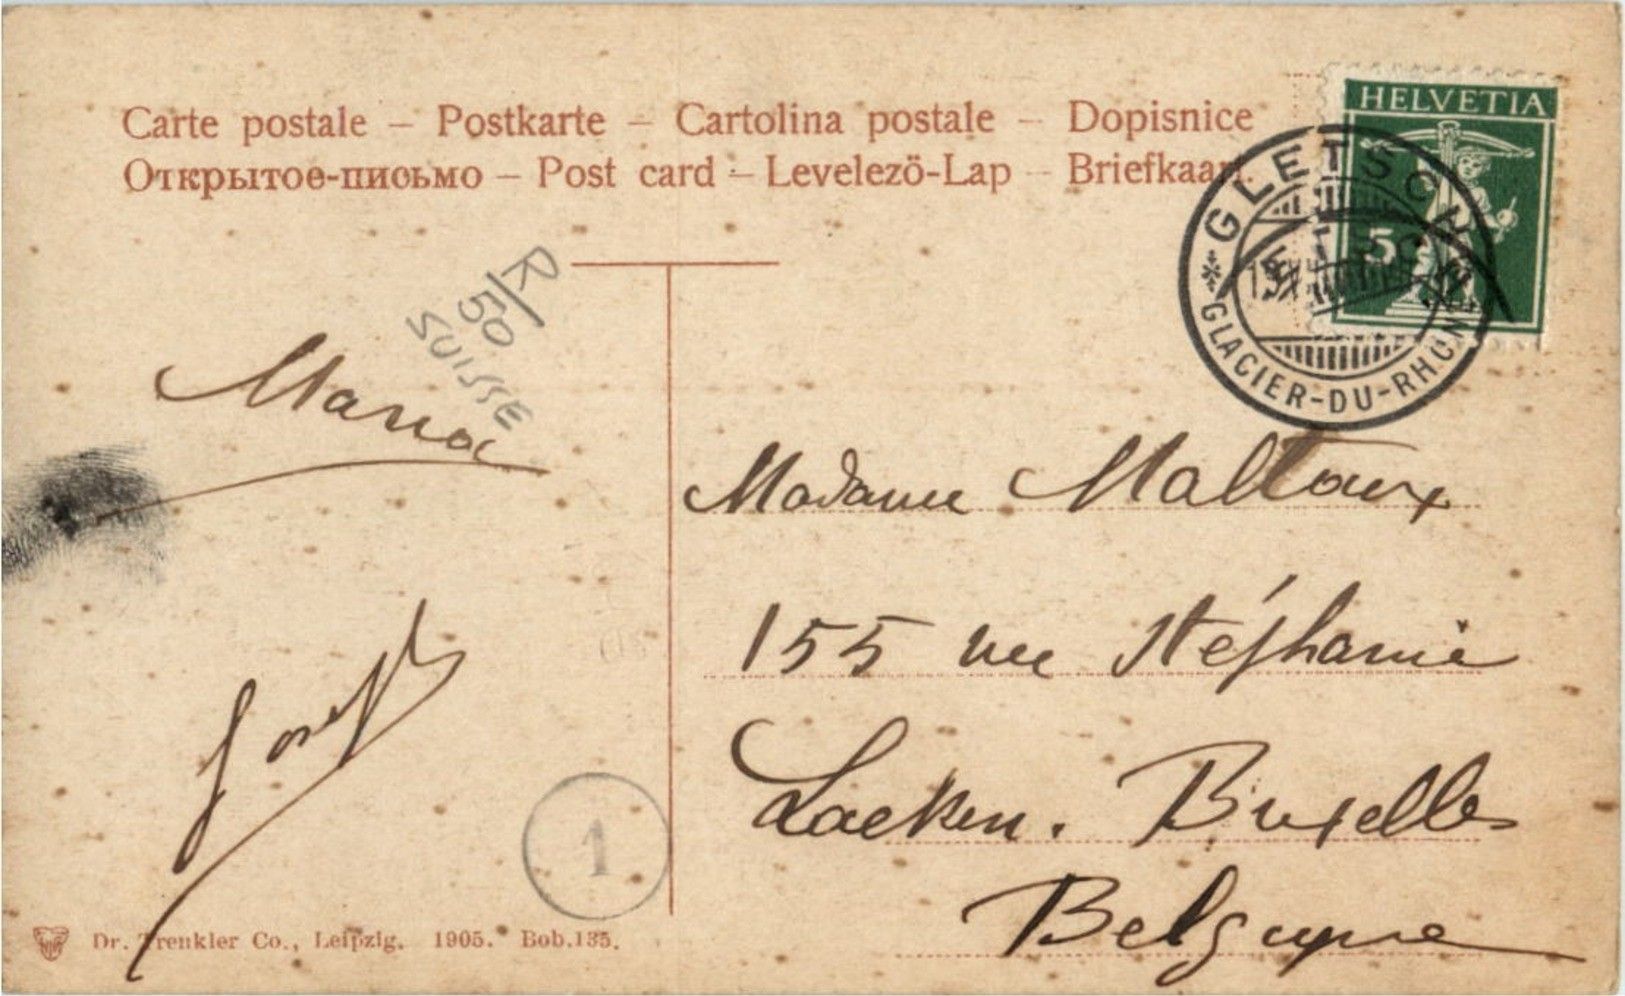 Carte postale – Postkarte – Cartolina postale – Dopisnice
Открытое-письмо – Post card – Levelező-Lap – Briefkaart.
HELVETIA
5
GLETSCH
GLACIER-DU-RHÔNE
R
50
SUISSE
Maria
Joseph
Madame Maltaux
155 rue Stéphanie
Laeken. Bruxelles
Belgique
1
Dr. Trenkler Co., Leipzig. 1905. Bob.135.